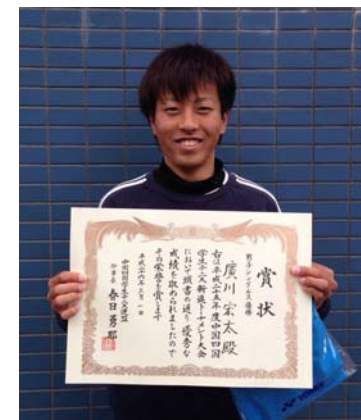 賞状
男子シングルス 優勝
廣川宏太殿
右は平成二十五年度中国四国
学生テニス新進トーナメント大会
において頭書の通り優秀な
成績を収められましたので
その栄誉を賞します
平成二十六年三月一日
中国四国学生テニス連盟
理事長 春日勇郎